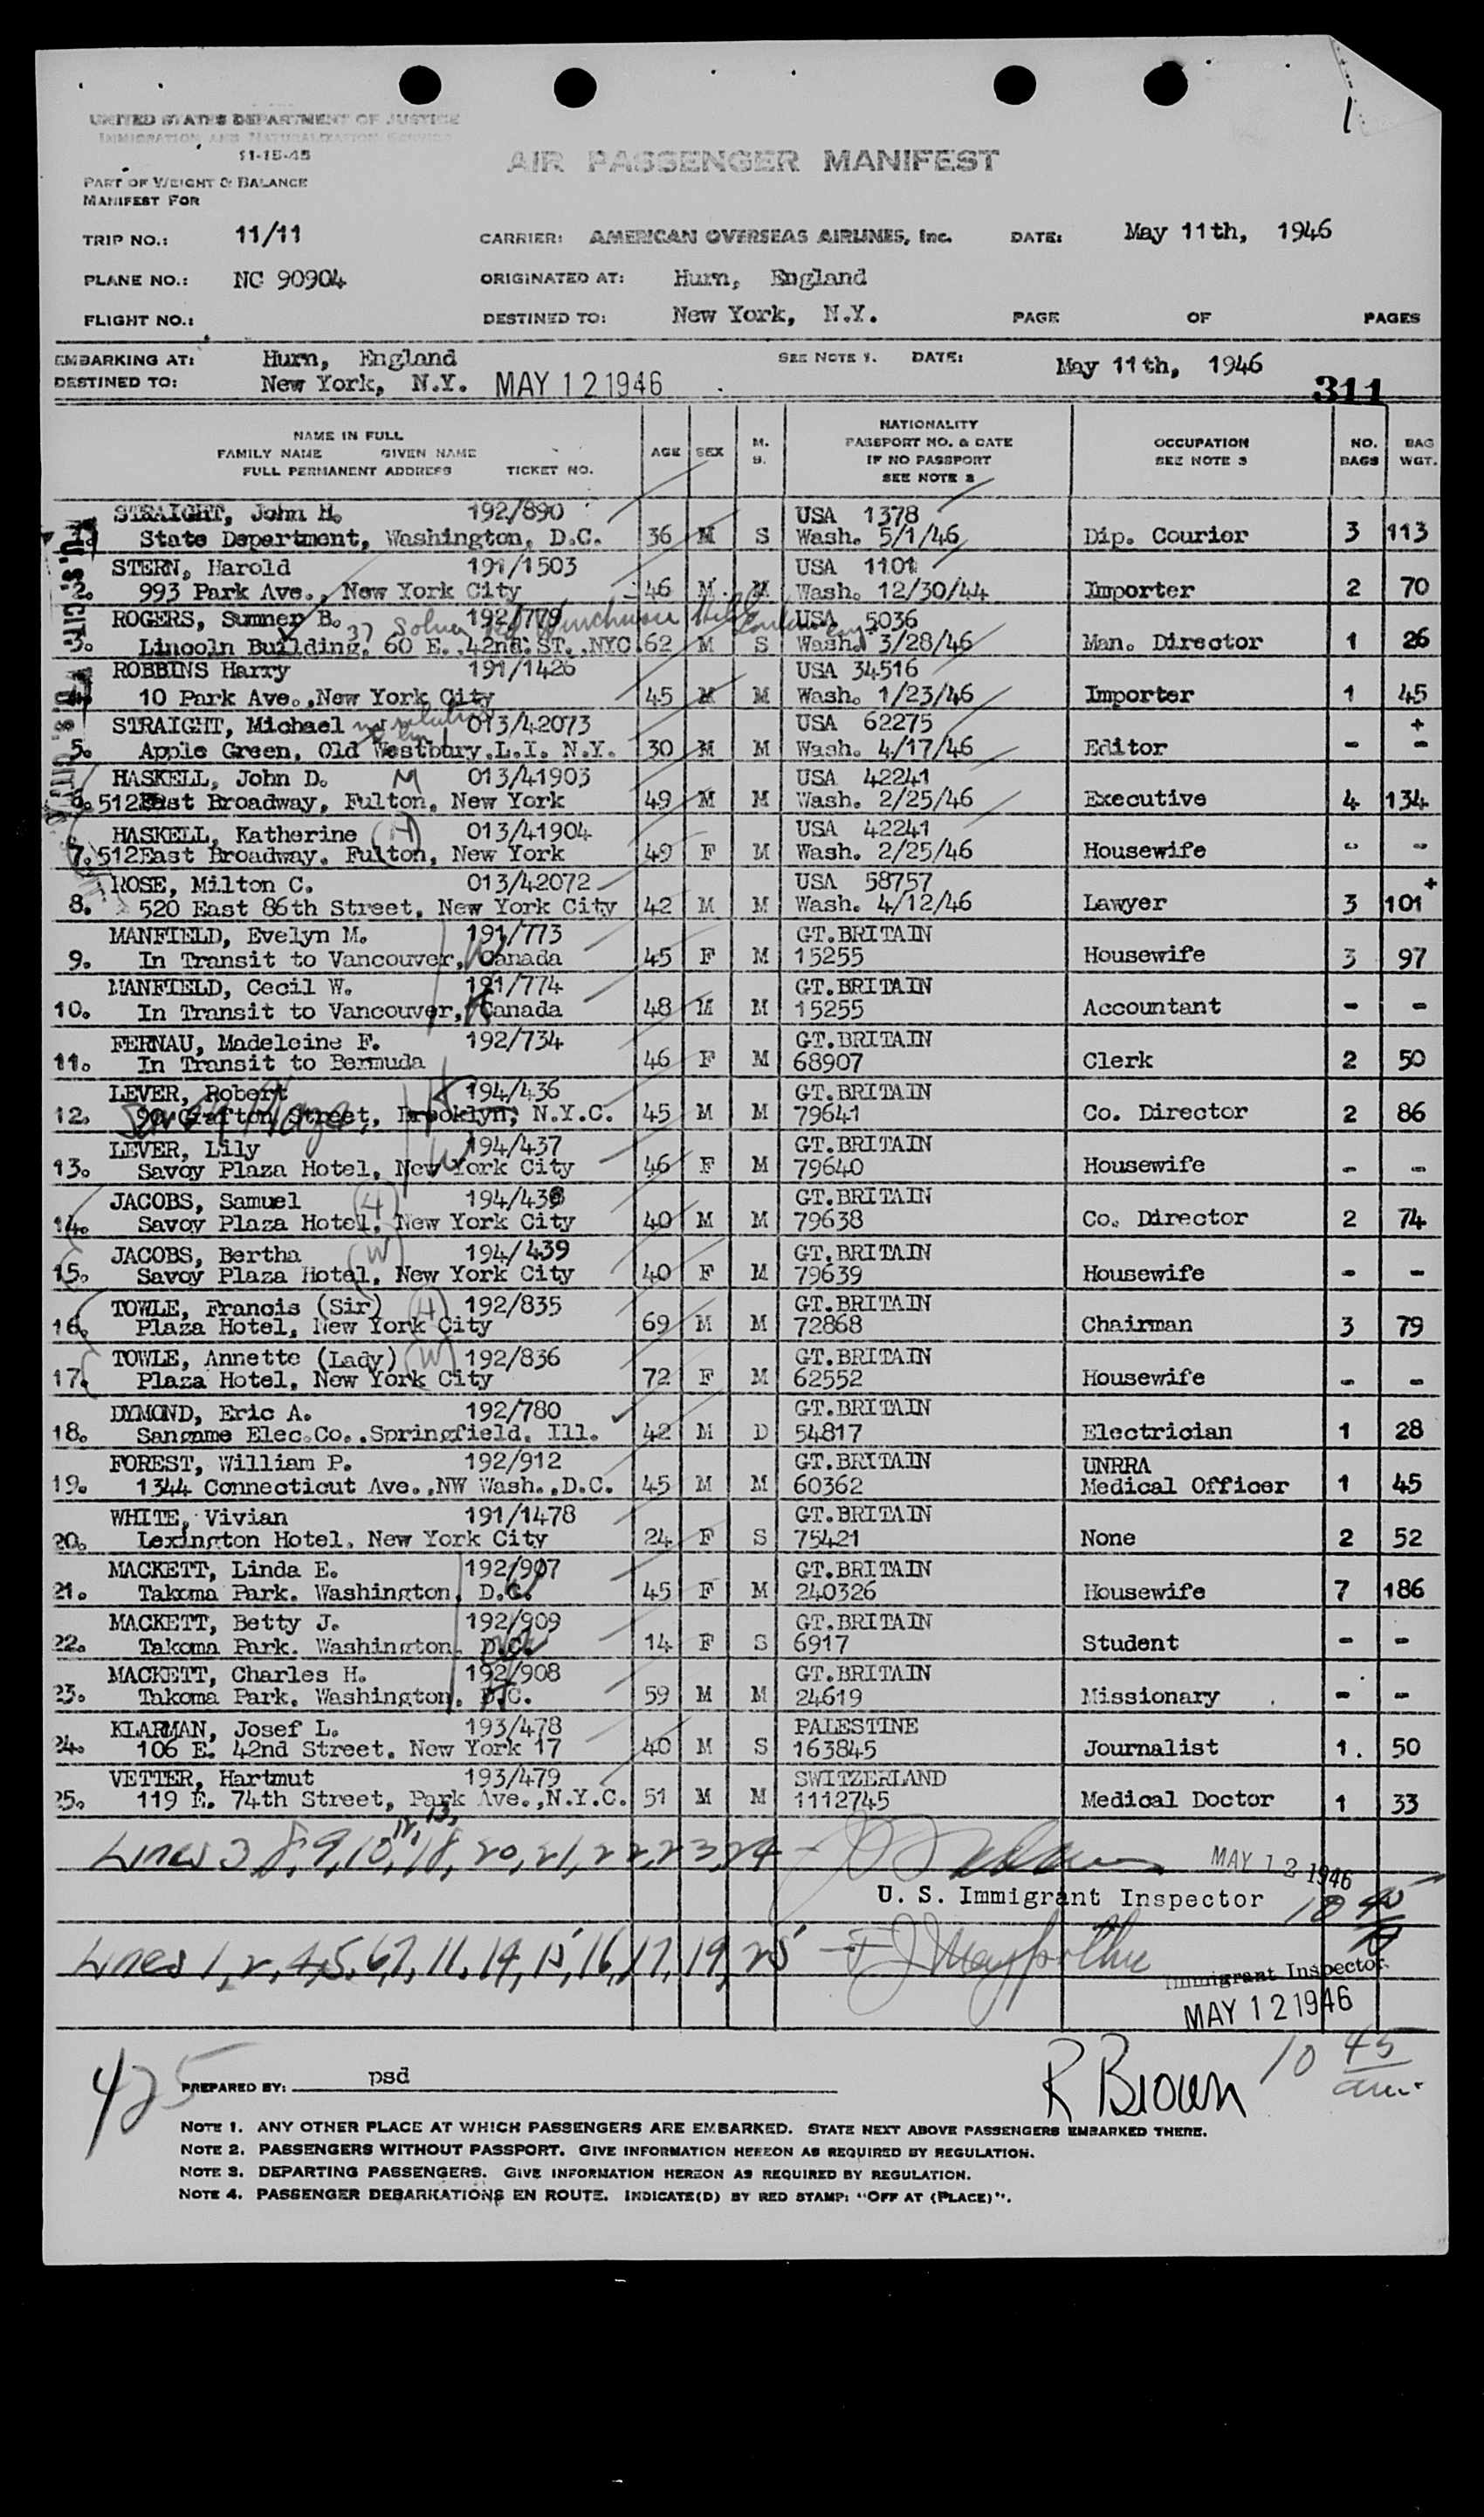 1
UNITED STATES DEPARTMENT OF JUSTICE
IMMIGRATION AND NATURALIZATION SERVICE
11-15-45
AIR PASSENGER MANIFEST
PART OF WEIGHT & BALANCE
MANIFEST FOR
TRIP NO.: 11/11 CARRIER: AMERICAN OVERSEAS AIRLINES, Inc. DATE: May 11th, 1946
PLANE NO.: NC 90904 ORIGINATED AT: Hurn, England
FLIGHT NO.: DESTINED TO: New York, N.Y. PAGE OF PAGES
EMBARKING AT: Hurn, England SEE NOTE 1. DATE: May 11th, 1946
DESTINED TO: New York, N.Y. MAY 12 1946 311
NAME IN FULL
FAMILY NAME GIVEN NAME
FULL PERMANENT ADDRESS TICKET NO.
AGE SEX M. S.
NATIONALITY
PASSPORT NO. & DATE
IF NO PASSPORT
SEE NOTE 2
OCCUPATION
SEE NOTE 3
NO. BAGS
BAG WGT.
U.S. CIT.
STRAIGHT, John H. 192/890 USA 1378
1. State Department, Washington, D.C. 36 M S Wash. 5/1/46 Dip. Courior 3 113
STERN, Harold 191/1503 USA 1101
2. 993 Park Ave., New York City 46 M M Wash. 12/30/44 Importer 2 70
ROGERS, Sumner B. 192/779 USA 5036
37
3. Lincoln Building, 60 E. 42nd. ST. ,NYC. 62 M S Wash. 3/28/46 Man. Director 1 26
ROBBINS Harry 191/1426 USA 34516
4. 10 Park Ave.,New York City 45 M M Wash. 1/23/46 Importer 1 45
STRAIGHT, Michael no relation 013/42073 USA 62275 +
5. Apple Green, Old Westbury,L.I. N.Y. 30 M M Wash. 4/17/46 Editor - -
HASKELL, John D. M 013/41903 USA 42241
6. 512East Broadway, Fulton, New York 49 M M Wash. 2/25/46 Executive 4 134
HASKELL, Katherine (H) 013/41904 USA 42241
7. 512East Broadway, Fulton, New York 49 F M Wash. 2/25/46 Housewife - -
ROSE, Milton C. 013/42072 USA 58757 +
8. 520 East 86th Street, New York City 42 M M Wash. 4/12/46 Lawyer 3 101
MANFIELD, Evelyn M. 191/773 GT.BRITAIN
9. In Transit to Vancouver, Canada 45 F M 15255 Housewife 3 97
MANFIELD, Cecil W. 191/774 GT.BRITAIN
10. In Transit to Vancouver, Canada 48 M M 15255 Accountant - -
FERNAU, Madeleine F. 192/734 GT.BRITAIN
11. In Transit to Bermuda 46 F M 68907 Clerk 2 50
LEVER, Robert 194/436 GT.BRITAIN
12. 90 Grafton Street, Brooklyn, N.Y.C. 45 M M 79641 Co. Director 2 86
Savoy Plaza
LEVER, Lily 194/437 GT.BRITAIN
13. Savoy Plaza Hotel, New York City 46 F M 79640 Housewife - -
JACOBS, Samuel (H) 194/438 GT.BRITAIN
14. Savoy Plaza Hotel, New York City 40 M M 79638 Co. Director 2 74
JACOBS, Bertha (W) 194/439 GT.BRITAIN
15. Savoy Plaza Hotel, New York City 40 F M 79639 Housewife - -
TOWLE, Francis (Sir) (H) 192/835 GT.BRITAIN
16. Plaza Hotel, New York City 69 M M 72868 Chairman 3 79
TOWLE, Annette (Lady) (W) 192/836 GT.BRITAIN
17. Plaza Hotel, New York City 72 F M 62552 Housewife - -
DYMOND, Eric A. 192/780 GT.BRITAIN
18. Sangame Elec.Co.,Springfield, Ill. 42 M D 54817 Electrician 1 28
FOREST, William P. 192/912 GT.BRITAIN UNRRA
19. 1344 Connecticut Ave.,NW Wash.,D.C. 45 M M 60362 Medical Officer 1 45
WHITE, Vivian 191/1478 GT.BRITAIN
20. Lexington Hotel, New York City 24 F S 75421 None 2 52
MACKETT, Linda E. 192/907 GT.BRITAIN
21. Takoma Park, Washington, D.C. 45 F M 240326 Housewife 7 186
MACKETT, Betty J. 192/909 GT.BRITAIN
22. Takoma Park. Washington, D.C. 14 F S 6917 Student - -
MACKETT, Charles H. 192/908 GT.BRITAIN
23. Takoma Park, Washington, D.C. 59 M M 24619 Missionary - -
KLARMAN, Josef L. 193/478 PALESTINE
24. 106 E. 42nd Street, New York 17 40 M S 163845 Journalist 1. 50
VETTER, Hartmut 193/479 SWITZERLAND
25. 119 E. 74th Street, Park Ave.,N.Y.C. 51 M M 1112745 Medical Doctor 1 33
12, 13,
Lines 3, 8, 9, 10, 18, 20, 21, 22, 23, 24 - MAY 12 1946
U. S. Immigrant Inspector 10 45
Lines 1, 2, 4, 5, 6, 7, 11, 14, 15, 16, 17, 19, 25 -
Immigrant Inspector
MAY 12 1946
425 R Brown 10 45 am
PREPARED BY: psd
NOTE 1. ANY OTHER PLACE AT WHICH PASSENGERS ARE EMBARKED. STATE NEXT ABOVE PASSENGERS EMBARKED THERE.
NOTE 2. PASSENGERS WITHOUT PASSPORT. GIVE INFORMATION HEREON AS REQUIRED BY REGULATION.
NOTE 3. DEPARTING PASSENGERS. GIVE INFORMATION HEREON AS REQUIRED BY REGULATION.
NOTE 4. PASSENGER DEBARKATIONS EN ROUTE. INDICATE(D) BY RED STAMP: "OFF AT (PLACE)".